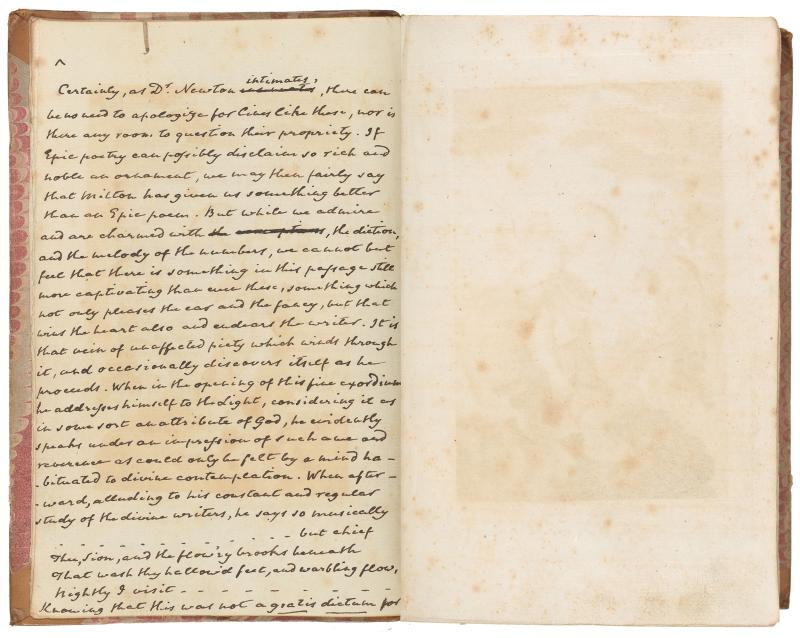 ^
intimates,
Certainly, as Dr. Newton , there can
be no need to apologize for lines like these, nor is
there any room to question their propriety. If
Epic poetry can possibly disclaim so rich and
noble an ornament, we may then fairly say
that Milton has given us something better
than an Epic poem. But while we admire
and are charmed with the conceptions, the diction,
and the melody of the numbers, we cannot but
feel that there is something in this passage still
more captivating than even these, something which
not only pleases the ear and the fancy, but that
wins the heart also and endears the writer. It is
that vein of unaffected piety which winds through
it, and occasionally discovers itself as he
proceeds. When in the opening of this fine exordium
he addresses himself to the Light, considering it as
in some sort an attribute of God, he evidently
speaks under an impression of such awe and
reverence as could only be felt by a mind ha-
-bituated to divine contemplation. When after-
-ward, alluding to his constant and regular
study of the divine writers, he says so musically
- - - - - - - - - - but chief
Thee, Sion, and the flow'ry brooks beneath
That wash thy hallow'd feet, and warbling flow,
Nightly I visit - - - - - - - - -
Knowing that this was not a gratis dictum for